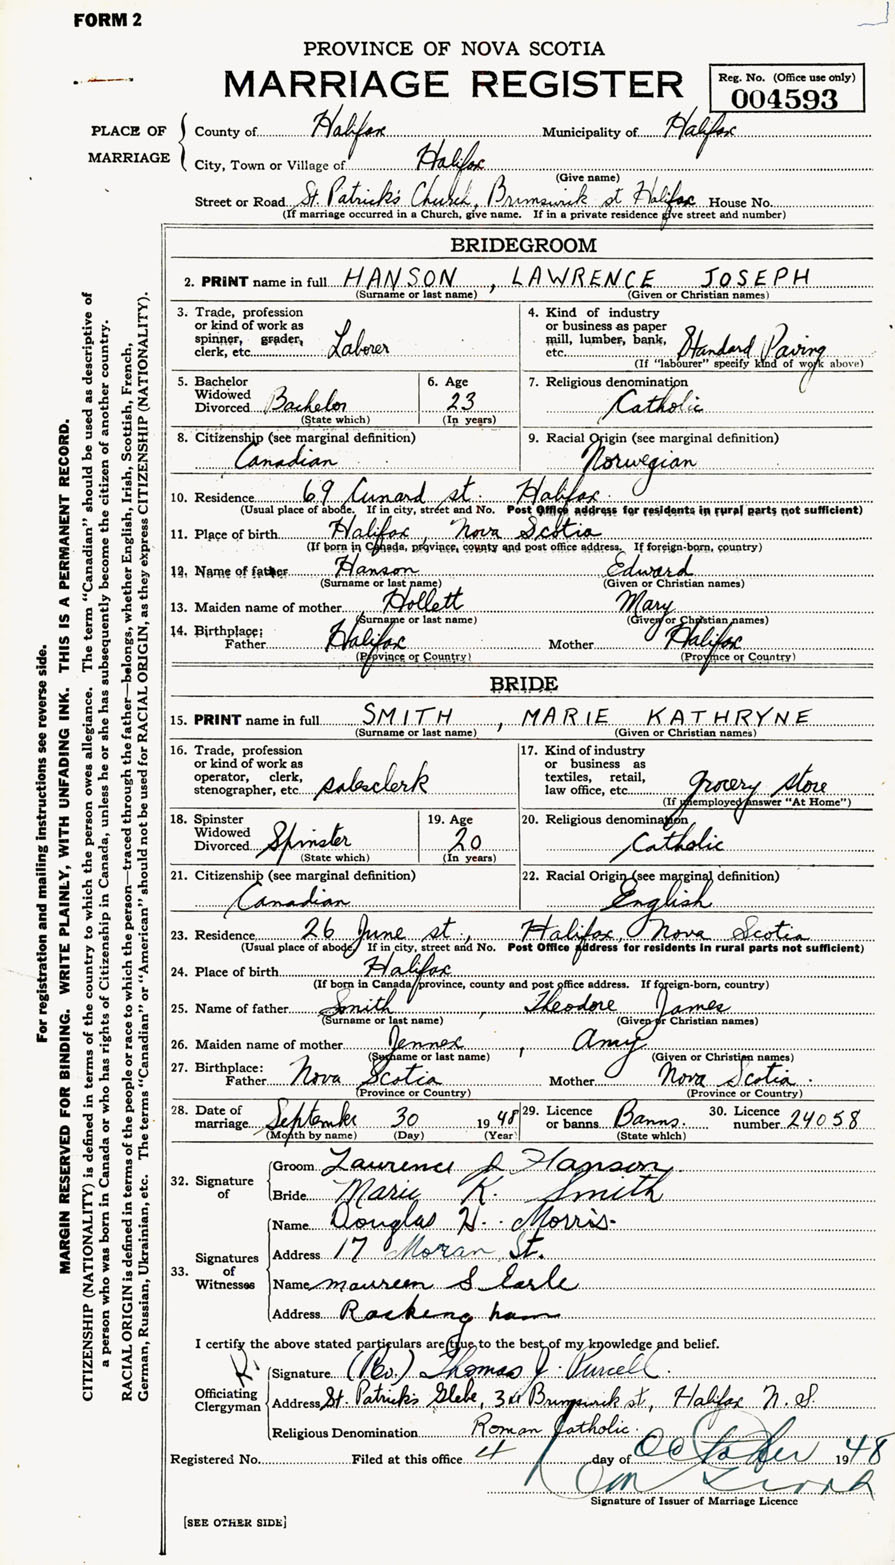 FORM 2
PROVINCE OF NOVA SCOTIA
MARRIAGE REGISTER
Reg. No. (Office use only)
004593
PLACE OF MARRIAGE
County of Halifax Municipality of Halifax
City, Town or Village of Halifax
(Give name)
Street or Road St. Patrick's Church, Brunswick st Halifax House No.
(If marriage occurred in a Church, give name. If in a private residence give street and number)
BRIDEGROOM
2. PRINT name in full HANSON , LAWRENCE JOSEPH
(Surname or last name) (Given or Christian names)
3. Trade, profession or kind of work as spinner, grader, clerk, etc. Laborer
4. Kind of industry or business as paper mill, lumber, bank, etc. Standard Paving
(If "labourer" specify kind of work above)
5. Bachelor Widowed Divorced Bachelor
(State which)
6. Age 23
(In years)
7. Religious denomination Catholic
8. Citizenship (see marginal definition) Canadian
9. Racial Origin (see marginal definition) Norwegian
10. Residence 69 Cunard st. Halifax.
(Usual place of abode. If in city, street and No. Post Office address for residents in rural parts not sufficient)
11. Place of birth Halifax, Nova Scotia
(If born in Canada, province, county and post office address. If foreign-born, country)
12. Name of father Hanson Edward
(Surname or last name) (Given or Christian names)
13. Maiden name of mother Hollett Mary
(Surname or last name) (Given or Christian names)
14. Birthplace: Father Halifax Mother Halifax
(Province or Country) (Province or Country)
BRIDE
15. PRINT name in full SMITH , MARIE KATHRYNE
(Surname or last name) (Given or Christian names)
16. Trade, profession or kind of work as operator, clerk, stenographer, etc. salesclerk
17. Kind of industry or business as textiles, retail, law office, etc. grocery store
(If unemployed answer "At Home")
18. Spinster Widowed Divorced Spinster
(State which)
19. Age 20
(In years)
20. Religious denomination Catholic
21. Citizenship (see marginal definition) Canadian
22. Racial Origin (see marginal definition) English
23. Residence 26 June st., Halifax, Nova Scotia
(Usual place of abode. If in city, street and No. Post Office address for residents in rural parts not sufficient)
24. Place of birth Halifax
(If born in Canada, province, county and post office address. If foreign-born, country)
25. Name of father Smith , Theodore James
(Surname or last name) (Given or Christian names)
26. Maiden name of mother Jennex , Amy
(Surname or last name) (Given or Christian names)
27. Birthplace: Father Nova Scotia Mother Nova Scotia.
(Province or Country) (Province or Country)
28. Date of marriage September 30 1948
(Month by name) (Day) (Year)
29. Licence or banns Banns.
(State which)
30. Licence number 24058
32. Signature of
Groom Lawrence J Hanson
Bride Marie K. Smith
33. Signatures of Witnesses
Name Douglas H. Morris
Address 17 Moran St.
Name Maureen S Earle
Address Rockingham
I certify the above stated particulars are true to the best of my knowledge and belief.
Officiating Clergyman
Signature (Rev.) Thomas J. Purcell.
Address St. Patrick's Glebe, Brunswick st, Halifax N. S.
Religious Denomination Roman Catholic.
Registered No. Filed at this office 4 day of October 1948
Signature of Issuer of Marriage Licence
[SEE OTHER SIDE]
For registration and mailing instructions see reverse side.
MARGIN RESERVED FOR BINDING. WRITE PLAINLY, WITH UNFADING INK. THIS IS A PERMANENT RECORD.
CITIZENSHIP (NATIONALITY) is defined in terms of the country to which the person owes allegiance. The term "Canadian" should be used as descriptive of
a person who was born in Canada or who has rights of Citizenship in Canada, unless he or she has subsequently become the citizen of another country.
RACIAL ORIGIN is defined in terms of the people or race to which the person—traced through the father—belongs, whether English, Irish, Scottish, French,
German, Russian, Ukrainian, etc. The terms "Canadian" or "American" should not be used for RACIAL ORIGIN, as they express CITIZENSHIP (NATIONALITY).